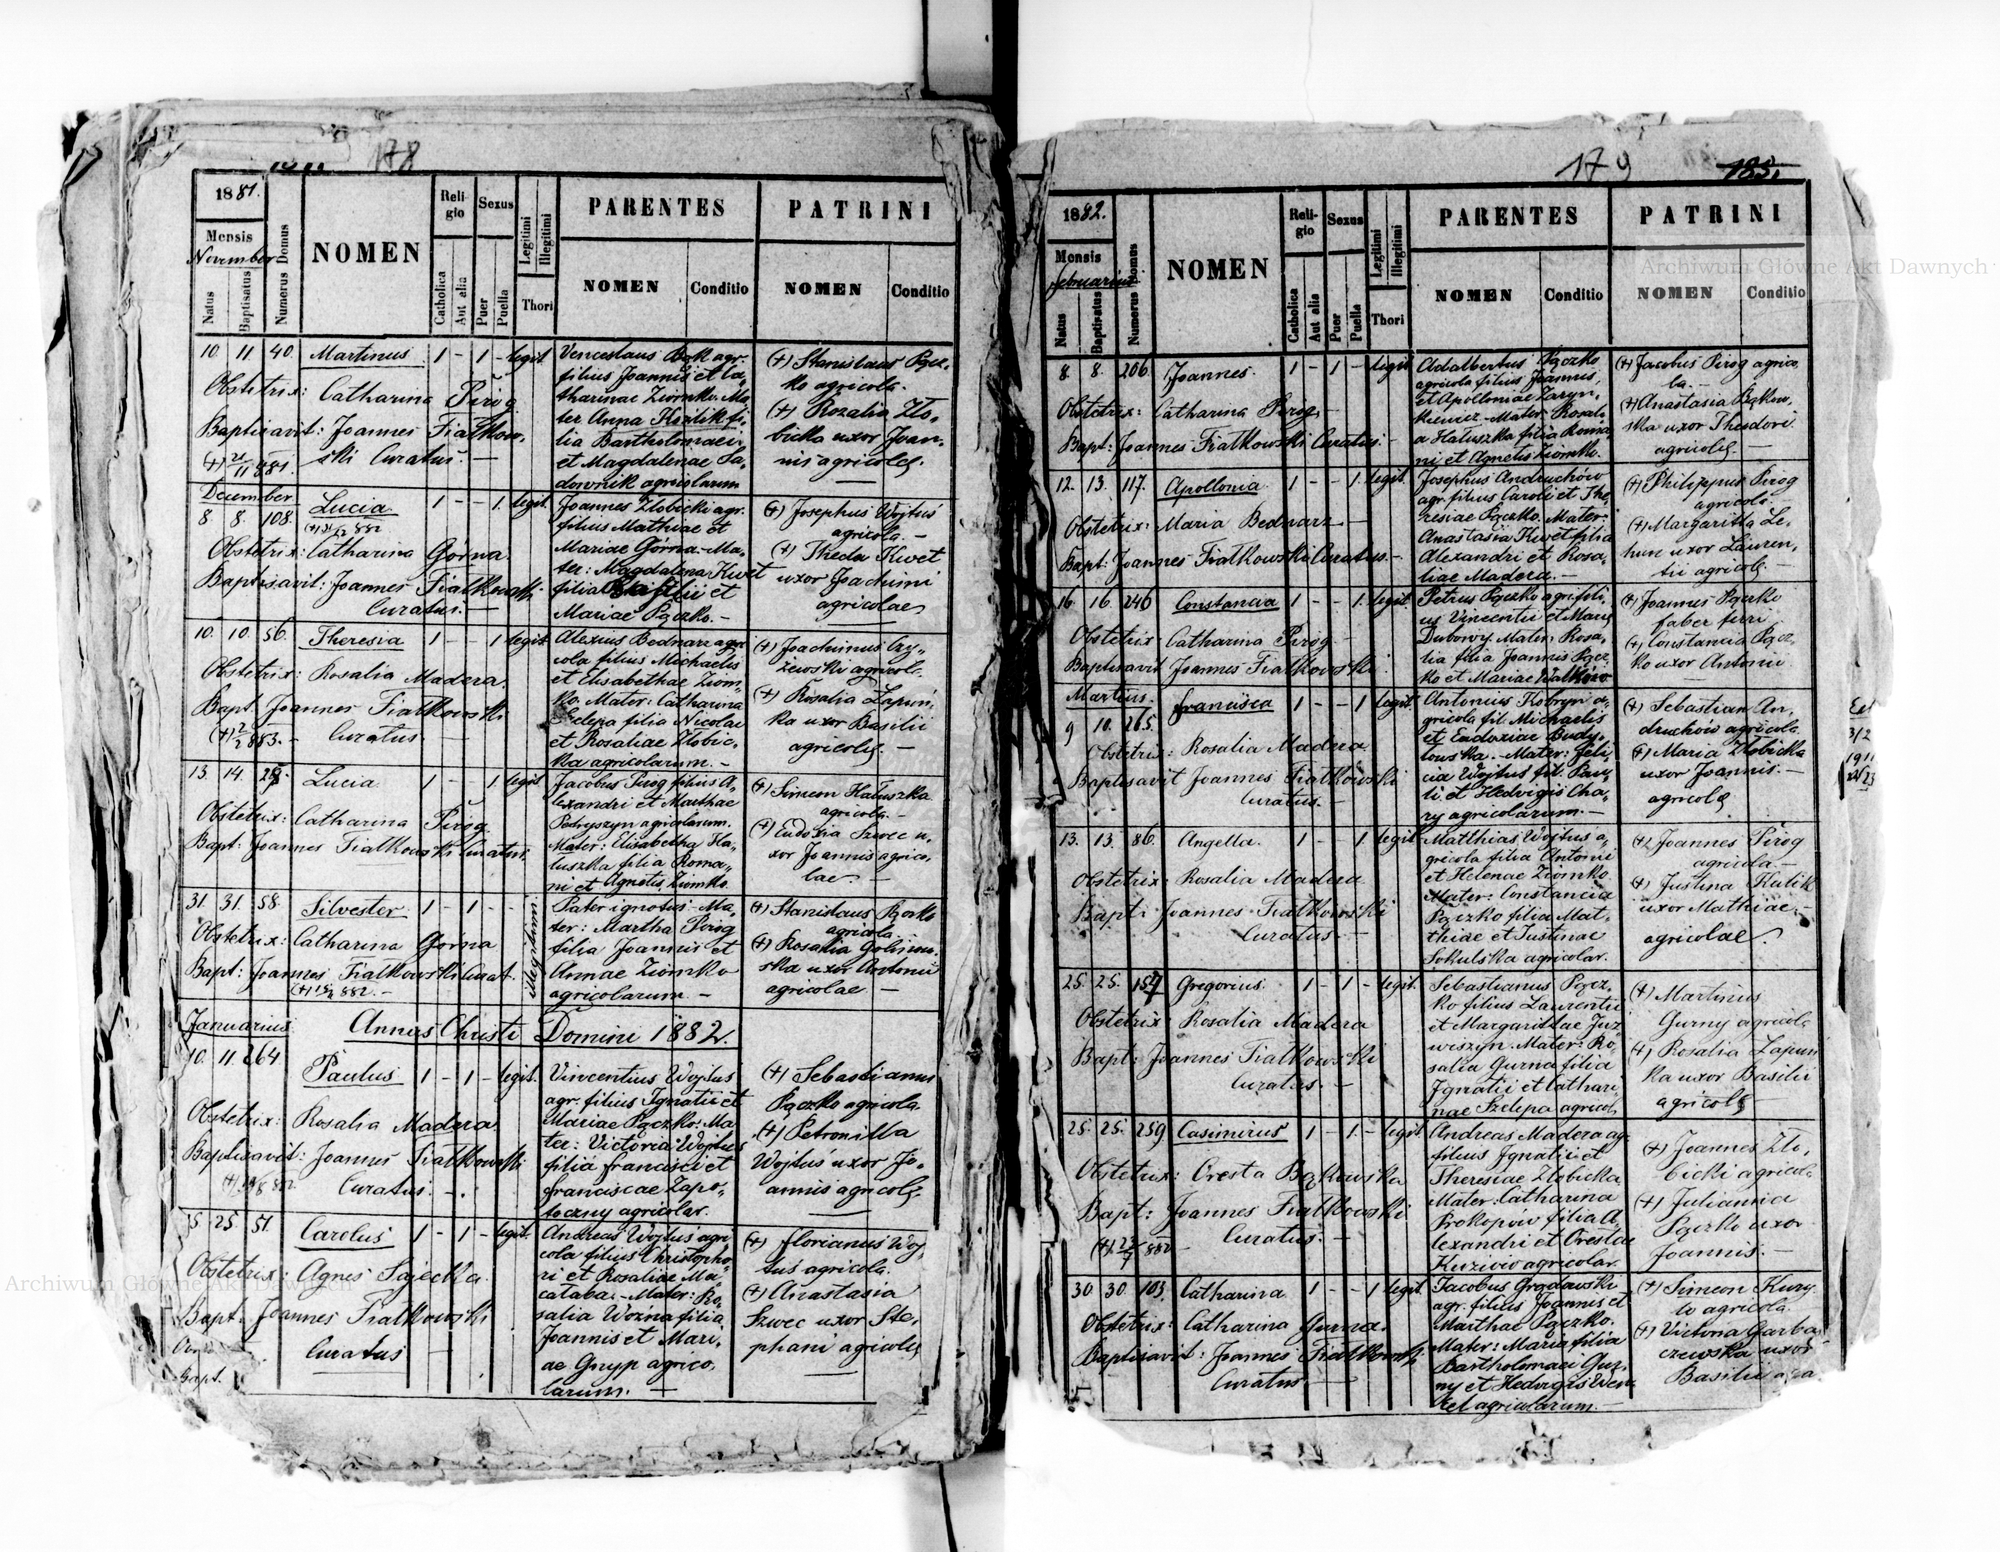 178
1881.
Mensis
November
Natus
Baptisatus
Numerus Domus
NOMEN
Religio
Catholica
Aut alia
Sexus
Puer
Puella
Legitimi
Illegitimi
Thori
PARENTES
NOMEN
Conditio
PATRINI
NOMEN
Conditio
10. 11. 40. Martinus 1 - 1 - legit.
Obstetrix: Catharina Pirog
Baptisavit: Joannes Fiatkow-
ski Curatus. -
(+) 21/11 881.
Venceslaus Bąk agr.
filius Joannis et Ca,
tharinae Ziomko. Ma,
ter Anna Kwilik fi,
lia Bartholomaei
et Magdalenae Sa,
downik agricolarum
(+) Stanislaus Pącz,
ko agricola.
(+) Rozalia Zło,
bicka uxor Joan,
nis agricolę.
December
8. 8. 108. Lucia 1 - - 1. legit.
Obstetrix: Catharina Górna.
Baptisavit: Joannes Fiatkowski
Curatus. -
Joannes Złobicki agr.
filius Mathiae et
Mariae Górna. Ma,
ter: Magdalena Kwet
filia Basilii et
Mariae Pączko. -
(+) Josephus Wojtuś
agricola. -
(+) Thecla Kwet
uxor Joachimi
agricolae
10. 10. 56. Theresia 1 - - 1 legit.
Obstetrix: Rosalia Madera.
Bapt. Joannes Fiatkowski
(+) 2/2 883. - Curatus -
Alexius Bednarz agri
cola filius Michaelis
et Elisabethae Ziom,
ko. Mater: Catharina
Szlepa filia Nicolai
et Rosaliae Złobic,
ka agricolarum. -
(+) Joachimus Czy,
żewski agricol.
(+) Rosalia Łapuń,
ka uxor Basilii
agricolę. -
13. 14. 28. Lucia 1 - - 1. legit
Obstetrix: Catharina Pirog.
Bapt: Joannes Fiatkowski Curatus.
Jacobus Pirog filius A,
lexandri et Marthae
Petryszyn agricolarum.
Mater: Elisabetha Ha,
luszka filia Roma,
ni et Agnetis Ziomko.
(+) Simeon Hałuszka
agricola. -
(+) Eudoxia Szwec u,
xor Joannis agrico,
lae. -
31. 31. 58. Silvester 1 - 1 - - illegitim.
Obstetrix: Catharina Górna
Bapt: Joannes Fiatkowski Curat.
Pater ignotus. Ma,
ter: Martha Pirog
filia Joannis et
Annae Ziomko
agricolarum. -
(+) Stanislaus
agricola.
(+) Rosalia
ska uxor Antonii
agricolae -
Januarius Annus Christi Domini 1882.
10. 11. 264 Paulus 1 - 1 - legit.
Obstetrix: Rosalia Madera.
Baptisavit: Joannes Fiatkowski
Curatus. -
Vincentius Wojtus
agr. filius Ignatii et
Mariae Pączko. Ma
ter: Victoria Wojtus
filia Francisci et
Franciscae Zapo,
toczny agricolar.
(+) Sebastianus
Pączko agricola.
(+) Petronilla
Wojtuś uxor Jo,
annis agricolę.
25. 51. Carolus 1 - 1 - legit.
Obstetrix: Agnes Sajecka.
Bapt. Joannes Fiatkowski
Curatus -
Bapt.
Andreas Wojtuś agri
cola filius Christopho,
ri et Rosaliae Ma,
cataba. - Mater: Ro,
salia Woźna filia
Joannis et Mari,
ae Gnyp agrico,
larum. -
(+) Florianus Woj
tus agricola.
(+) Anastasia
Szwec uxor Ste,
phani agricolę
179
185.
1882.
Mensis
februarius
Natus
Baptisatus
Numerus Domus
NOMEN
Religio
Catholica
Aut alia
Sexus
Puer
Puella
Legitimi
Illegitimi
Thori
PARENTES
NOMEN
Conditio
PATRINI
NOMEN
Conditio
8. 8. 206. Joannes. 1 - 1 - legit
Obstetrix: Catharina Pirog.
Bapt: Joannes Fiatkowski Curatus. -
Adalbertus Pączko
agricola filius Joannis,
et Apolloniae Zaryn,
kiewicz. Mater: Rosali
a Hałuszka filia Roma,
ni et Agnetis Ziomko.
(+) Jacobus Pirog agrico
la. -
(+) Anastasia Bąkow,
ska uxor Theodori
agricolę.
12. 13. 117. Apollonia. 1 - - 1. legit.
Obstetrix: Maria Bednarz -
Bapt: Joannes Fiatkowski Curatus. -
Josephus Andruchów
agr. filius Caroli et The,
resiae Pączko. Mater:
Anastasia Kwet filia
Alexandri et Rosa,
liae Madera. -
(+) Philippus Pirog
agricola. -
(+) Margaritta Le,
hun uxor Lauren,
tii agricolę. -
16. 16. 246 Constancia 1 - - 1. legit.
Obstetrix Catharina Pirog. -
Baptisavit Joannes Fiatkowski.
Petrus Pączko agr. fili,
us Vincentii et Marię
Dubowy. Mater: Rosa,
lia filia Joannis Pącz
ko et Mariae
(+) Joannes Pączko
faber ferri
(+) Constancia Pącz
ko uxor Antonii
Martius.
9 10. 265. Francisca 1 - - 1 legit.
Obstetrix: Rosalia Madera
Baptisavit Joannes Fiatkowski
Curatus. -
Antonius Kobryn a,
gricola fil. Michaelis
et Eudoxiae Budy,
lowska. - Mater: Feli
cia Wojtuś fil. Pau,
li et Hedvigis Cha,
ry agricolarum. -
(+) Sebastian An,
druchów agricola
(+) Maria Złobicka
uxor Joannis. -
agricolę
13. 13. 86. Angella. 1 - - 1 legit
Obstetrix: Rosalia Madera
Bapt: Joannes Fiatkowski
Curatus. -
Matthias Wojtus a,
gricola filia Antonii
et Helenae Ziomko.
Mater: Constancia
Pączko filia Mat,
thiae et Justinae
Sokulska agricolar.
(+) Joannes Pirog
agricola. -
(+) Justina Kulik
uxor Mathiae. -
agricolae.
25. 25. 157 Gregorius. 1 - 1 - legit.
Obstetrix: Rosalia Madera
Bapt: Joannes Fiatkowski
Curatus. -
Sebastianus Pącz,
ko filius Laurentii
et Margarittae Juz,
wiszyn. Mater: Ro,
salia Gurna filia
Ignatii et Cathari
nae Szelepa agricol.
(+) Martinus
Gurny agricola
(+) Rosalia Łapuń
ka uxor Basilii
agricolę -
25. 25. 259 Casimirus 1 - 1. - legit
Obstetrix: Oresta Bąkowska
Bapt: Joannes Fiatkowski
Curatus. -
Andreas Madera ag.
filius Ignatii et
Theresiae Złobicka,
Mater: Catharina
Prokopów filia A,
lexandri et Orestae
Kuziów agricolar.
(+) Joannes Zło,
bicki agricola.
(+) Julianna
Pączko uxor
Joannis. -
30. 30. 103. Catharina 1 - - 1 legit.
Obstetrix: Catharina Gurna.
Baptisavit: Joannes Fiatkowski
Curatus -
Jacobus Grodowski
agr. filius Joannis et
Marthae Pączko.
Mater: Maria filia
Bartholomaei Gur,
ny et Hedvigis Wen
zel agricolarum. -
(+) Simeon Kury,
lo agricola
(+) Victoria Garba,
czewska uxor
Basilii
Archiwum Główne Akt Dawnych
Archiwum Główne Akt Dawnych